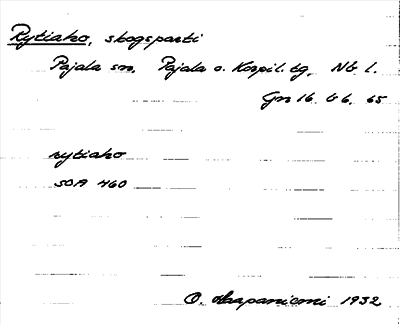 Rytiaho, skogsparti
Pajala sn, Pajala o. Korpil. tg, Nb l.
Gn 16 b 6, 65
rytiaho
SOA 460
O. Haapaniemi 1932